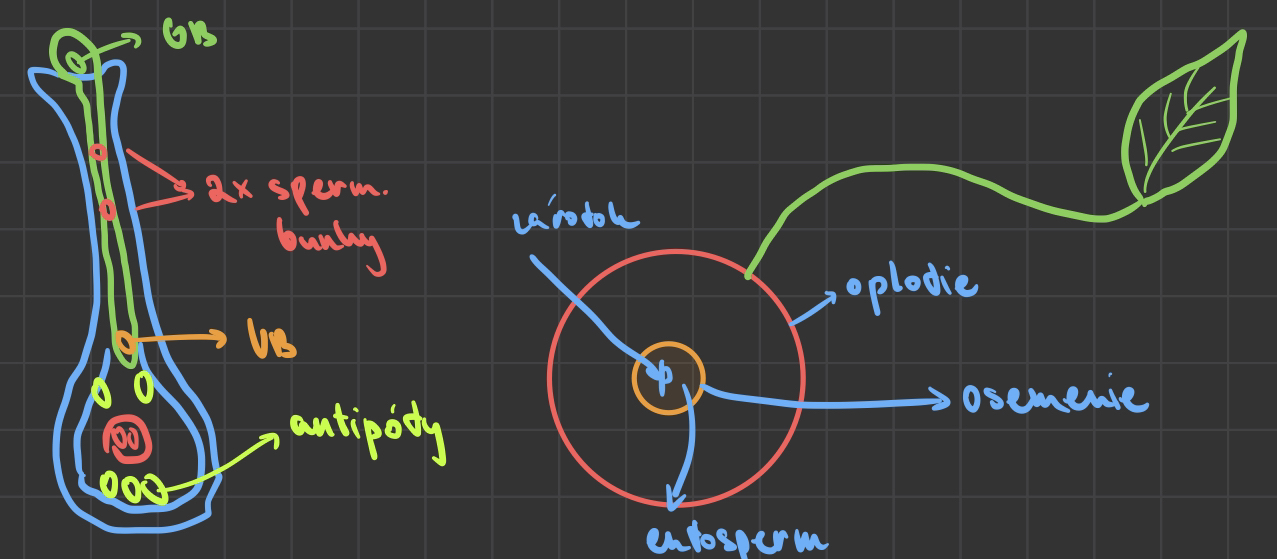 GB
2x sperm.
bunky
VB
antipódy
zárodok
oplodie
osemenie
entosperm